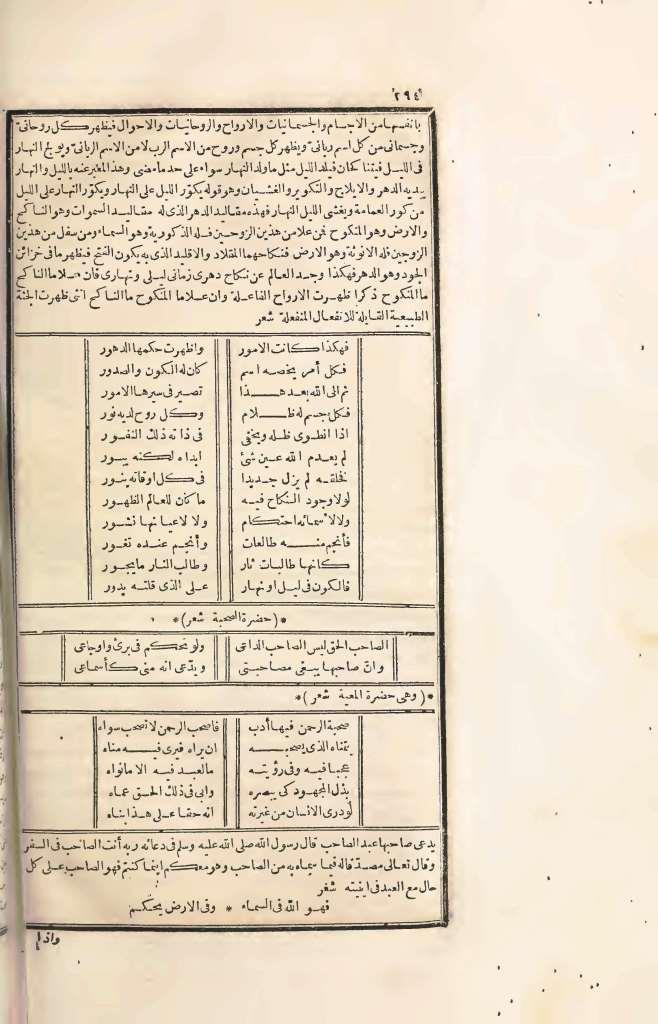 ٢٩٤
بأنفسها من الاجسام والجسمانيات والارواح والروحانيات والاحوال فيظهر كل روحانى
وجسمانى من كل اسم ربانى ويظهر كل جسم وروح من الاسم الرب لا من الاسم الربانى ويولج النهار
فى الليل فيتناكحان فيلد الليل مثل ما ولد النهار سواء على حد ما مضى وهذا المعبر عنه بالليل والنهار
يبديه الدهر والايلاج والتكوير والغشيان وهو قوله يكوّر الليل على النهار ويكوّر النهار على الليل
من كور العمامة ويغشى الليل النهار فهذه مقاليد الدهر الذى له مقاليد السموات وهو الناكح
والارض وهو المنكوح فمن علا من هذين الزوجين فله الذكورية وهو السماء ومن سفل من هذين
الزوجين فله الانوثة وهو الارض فنكاحهما المقلاد والاقليد الذى به يكون الفتح فيظهر ما فى خزائن
الجود وهو الدهر فهكذا وجد العالم عن نكاح دهرى زمانى ليلى ونهارى فان علا ما الناكح
ما المنكوح ذكرا ظهرت الارواح الفاعلة وان علا ما المنكوح ما الناكح انثى ظهرت الجثة
الطبيعية القابلة للانفعال المنفعلة شعر
فهكذا كانت الامور واظهرت حكمها الدهور
فكل أمر يخصه اسم كان له الكون والصدور
ثم الى الله بعد هذا تصير فى سيرها الامور
فكل جسم له ظلام وكل روح لديه نور
اذا انطوى ظله ويخفى فى ذاته ذلك النفور
لم يعدم الله عين شئ ابداه لكنه يبور
فخلقه لم يزل جديدا فى كل اوقاته ينور
لولا وجود النكاح فيه ما كان للعالم الظهور
ولا لأسمائه احتكام ولا لاعيانها نشور
فأنجم منه طالعات وأنجم عنده تغور
كأنها طالبات ثار وطالب النار ما يجور
فالكون فى ليل او نهار على الذى قلته يدور
*(حضرة الصحبة شعر)*
الصاحب الحق ليس الصاحب الداعى ولو تحكم فى برئى واوجاعى
وانّ صاحبها يبغى مصاحبتى ويدّعى انه منى كأسماعى
*(وهى حضرة المعية شعر)*
صحبة الرحمن فيها أدب فاصحب الرحمن لا تصحب سواه
يتمناه الذى يصحبه ان يراه فيرى فيه مناه
عجبا فيه وفى رؤيته ما لعبد فيه الا ما نواه
بذل المجهود كى يبصره وابى فى ذلك الحق عماه
لو درى الانسان من غيرته انه حقا على هذا بناه
يدعى صاحبها عبد الصاحب قال رسول الله صلى الله عليه وسلم فى دعائه ربه أنت الصاحب فى السفر
وقال تعالى مصدّقا له فيما سماه به من الصاحب وهو معكم اينما كنتم فهو الصاحب على كل
حال مع العبد فى اينيته شعر
فهو الله فى السماء * وفى الارض يحكم
واذا